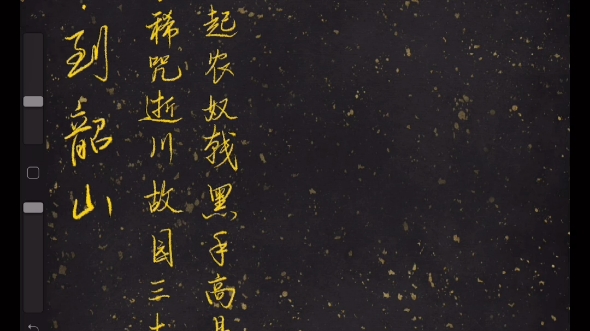 到韶山
稀咒逝川故园三
起农奴戟黑手高